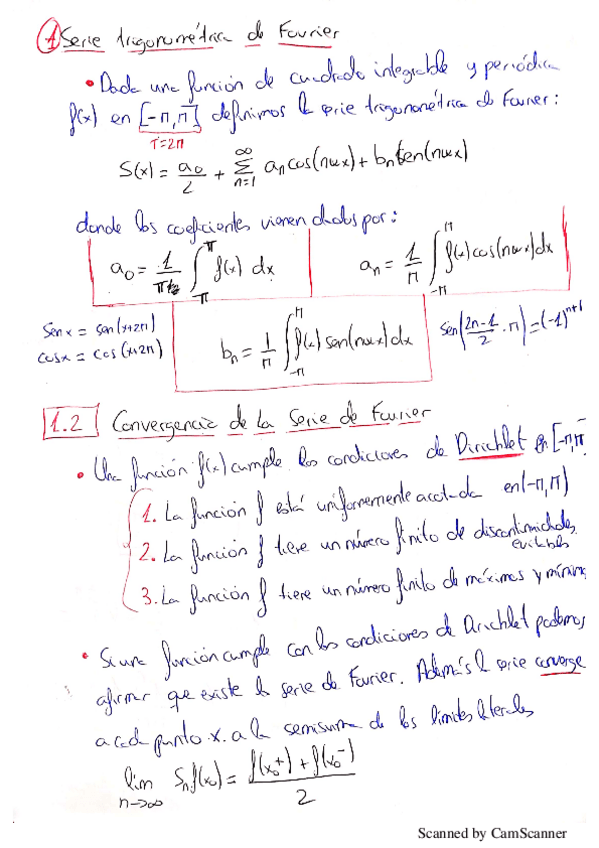 1 Serie trigonométrica de Fourier
• Dada una función de cuadrado integrable y periódica
f(x) en [-π,π] definimos la serie trigonométrica de Fourier:
T=2π
S(x) = a₀/2 + ∑_{n=1}^{∞} aₙcos(nωx) + bₙsen(nωx)
donde los coeficientes vienen dados por:
a₀ = 1/π ∫_{-π}^{π} f(x) dx
aₙ = 1/π ∫_{-π}^{π} f(x)cos(nωx)dx
senx = sen(x+2π)
cosx = cos(x+2π)
bₙ = 1/π ∫_{-π}^{π} f(x) sen(nωx)dx
sen(2n-1/2 · π) = (-1)^{n+1}
1.2 Convergencia de la Serie de Fourier
• Una función f(x) cumple los condiciones de Dirichlet en [-π,π
1. La función f está uniformemente acotada en (-π,π)
2. La función f tiene un número finito de discontinuidades
evitables
3. La función f tiene un número finito de máximos y mínimo
• Si una función cumple con los condiciones de Dirichlet podemos
afirmar que existe la serie de Fourier. Además la serie converge
a cada punto x. a la semisuma de los límites laterales
lim_{n→∞} Sₙf(x₀) = f(x₀⁺) + f(x₀⁻) / 2
Scanned by CamScanner